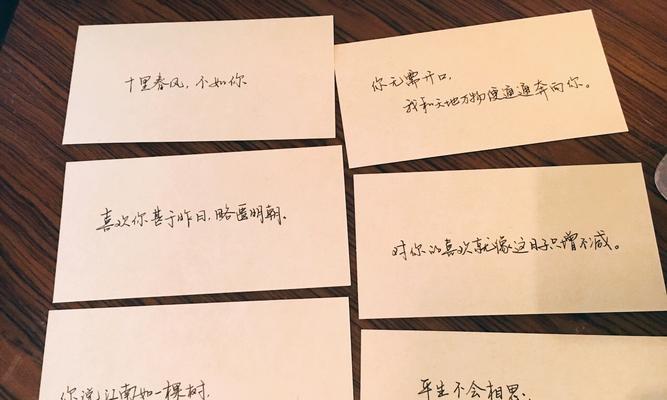 十里春风，不如你.
你无需开口，
我和天地万物便通通奔向你。
喜欢你甚于昨日，略匮明朝.
对你的喜欢就像这日子只增不减。
你说江南如一棵树，
平生不会相思.